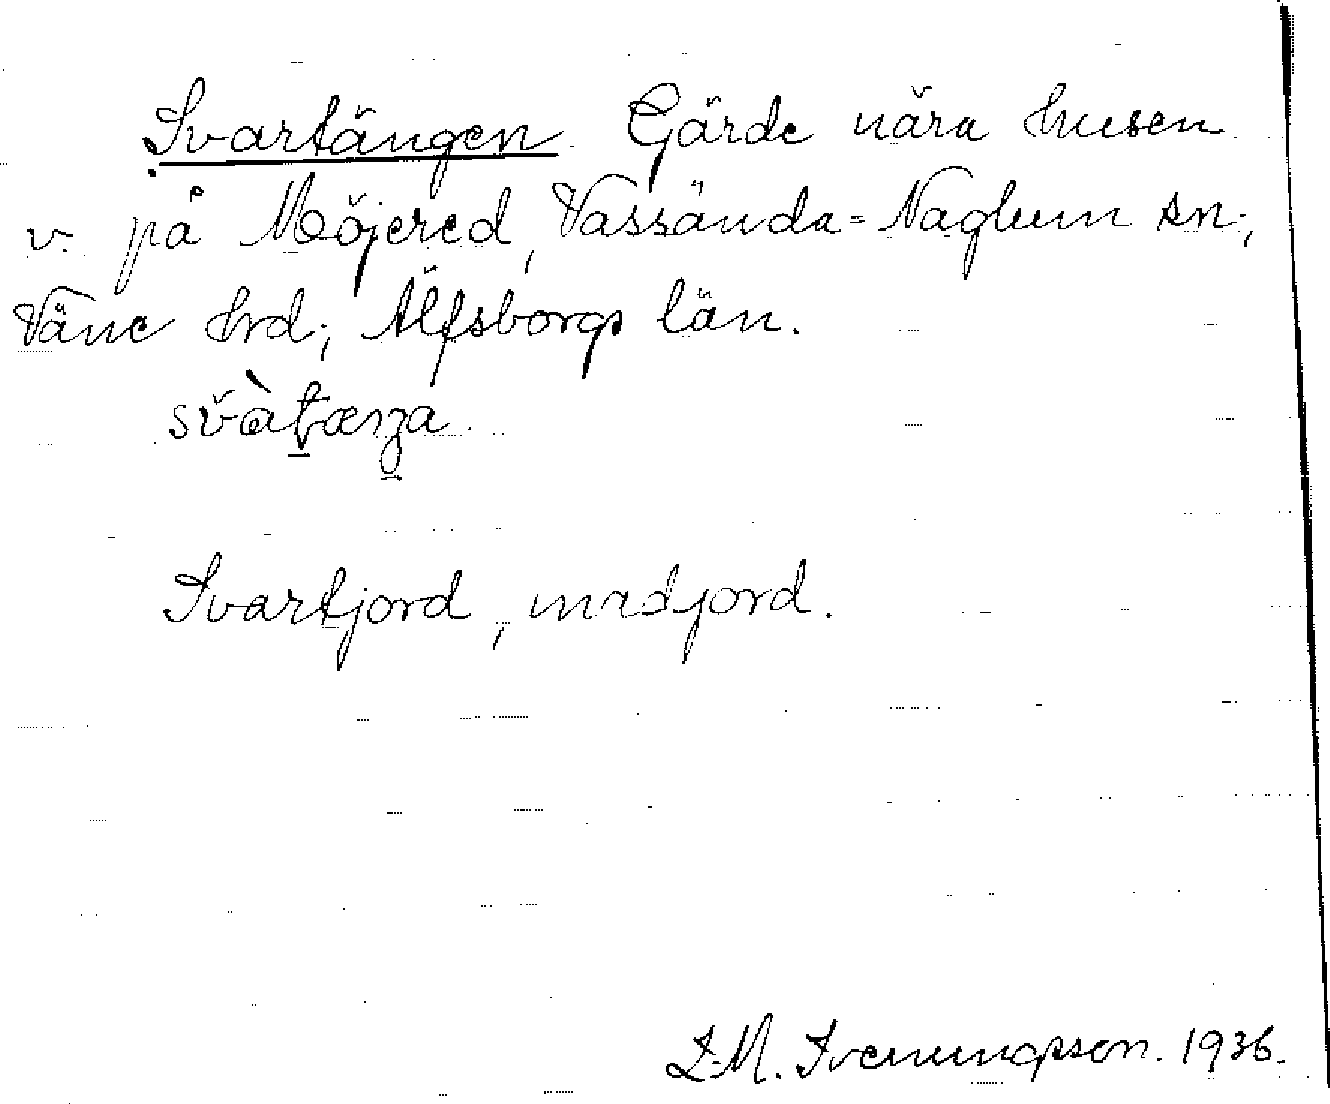 Svartängen. Gärde nära husen
v. på Möjered, Vassända-Naglum sn.,
Väne hrd., Älfsborgs län.
Svartjord, mrdjord.
Svenungsson. 1936.